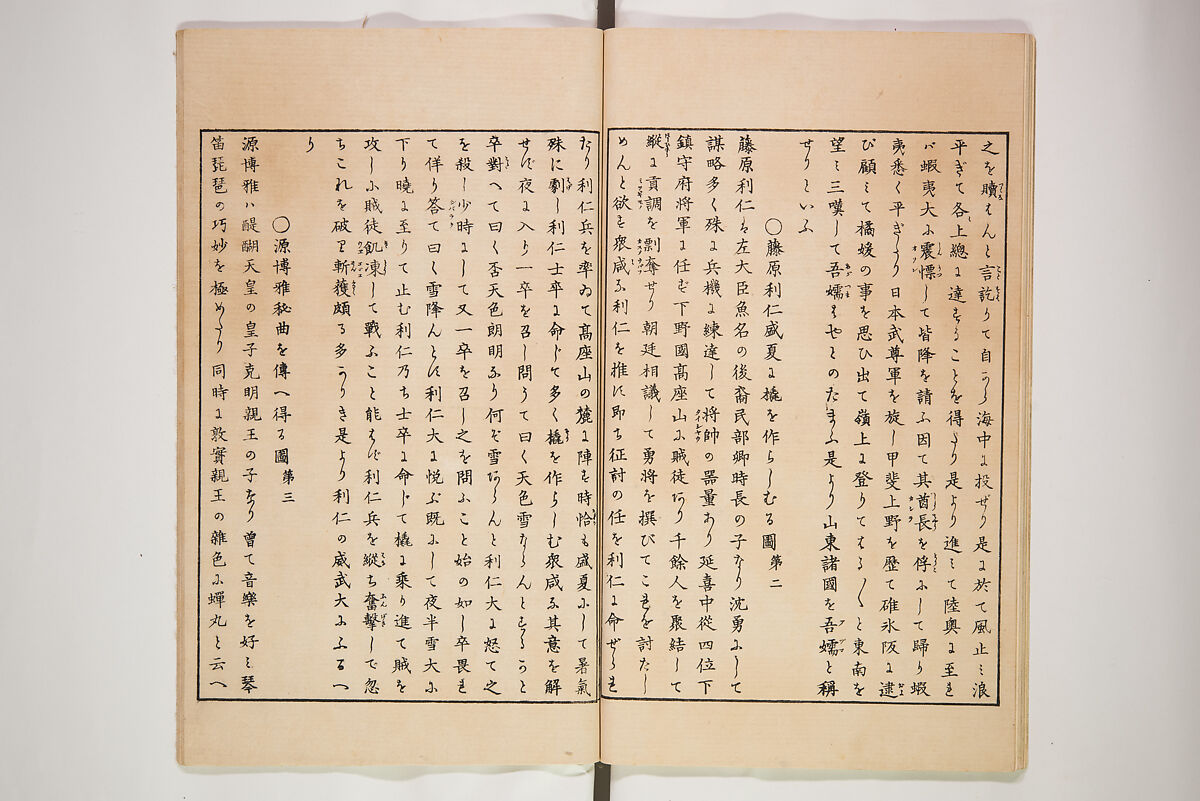 之を贖はんと言訖りて自から海中に投ぜり是に於て風止ミ浪
平ぎて各上總に達することを得たり是より進ミて陸奥に至れ
バ蝦夷大に震慄して皆降を請ふ因て其酋長を俘にして歸り蝦
夷悉く平ぎしより日本武尊軍を旋し甲斐上野を歷て碓氷阪に逮
び顧ミて橘媛の事を思ひ出て嶺上に登りてはる〱と東南を
望ミ三嘆して吾嬬はやとのたまふ是より山東諸國を吾嬬と稱
せりといふ
○藤原利仁盛夏に橇を作らしむる圖 第二
藤原利仁は左大臣魚名の後裔民部卿時長の子なり沈勇にして
謀略多く殊に兵機に練達して将帥の器量あり延喜中從四位下
鎮守府將軍に任ず下野國髙座山に賊徒あり千餘人を聚結して
縱に貢調を剽奪せり朝廷相議して勇將を撰びてこれを討たし
めんと欲す衆咸な利仁を推に即ち征討の任を利仁に命ぜられ
たり利仁兵を率ゐて髙座山の麓に陣す時恰も盛夏にして暑氣
殊に劇し利仁士卒に命じて多く橇を作らしむ衆咸な其意を解
せず夜に入り一卒を召し問うて曰く天色雪ならんとするかと
卒對へて曰く否天色朗明なり何ぞ雪あらんと利仁大に怒て之
を殺し少時にして又一卒を召し之を問ふこと始の如し卒畏れ
て佯り答て曰く雪降んとに利仁大に悦ぶ既にして夜半雪大に
下り曉に至りて止む利仁乃ち士卒に命じて橇に乘り進て賊を
攻しに賊徒飢凍して戰ふこと能はず利仁兵を縱ち奮擊して忽
ちこれを破り斬獲頗る多かりき是より利仁の威武大にふるへ
り
○源博雅秘曲を傳へ得る圖 第三
源博雅ハ醍醐天皇の皇子克明親王の子なり曾て音樂を好ミ琴
笛琵琶の巧妙を極めたり同時に敦實親王の雜色に蟬丸と云へ